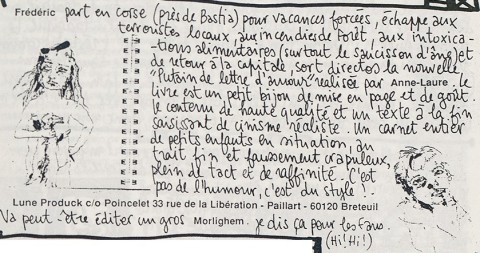 Frédéric part en corse (près de Bastia) pour vacances forcées, échappe aux
terroristes locaux, aux incendies de forêt, aux intoxica-
-tions alimentaires (surtout le saucisson d'âne) et
de retour à la capitale, sort directos la nouvelle
"Putain de lettre d'amour" réalisée par Anne-Laure. Le
livre est un petit bijou de mise en page et de goût.
Le contenu de haute qualité et un texte à la fin
saisissant de cinisme réaliste. Un carnet entier
de petits enfants en situation, au
trait fin et faussement crapuleux,
plein de tact et de raffinité. C'est
pas de l'humour, c'est du style !.
Lune Produck c/o Poincelet 33 rue de la Libération - Paillart - 60120 Breteuil
Va peut être éditer un gros Morlighem. je dis ça pour les fans.
(Hi! Hi!)